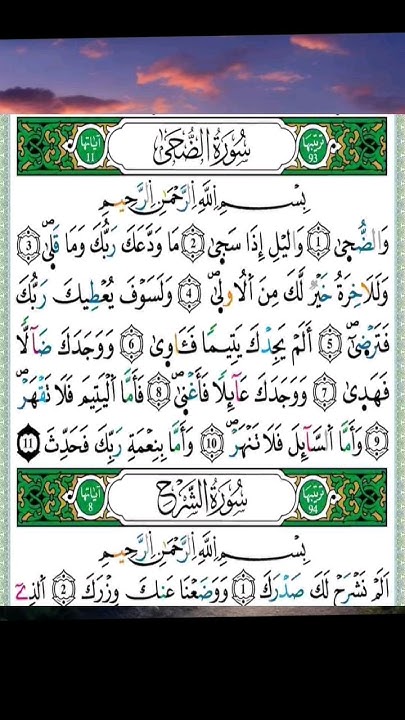 ترتيبها 93 سُورَةُ الضُّحَىٰ آياتها 11
بِسْمِ اِللَّهِ اِلرَّحْمَٰنِ اِلرَّحِيمِ
وَالضُّحَىٰ 1 وَاليْلِ إِذَا سَجَىٰ 2 مَا وَدَّعَكَ رَبُّكَ وَمَا قَلَىٰ 3
وَلَلَاخِرَةُ خَيْرٌ لَّكَ مِنَ اَلُاولَىٰ 4 وَلَسَوْفَ يُعْطِيكَ رَبُّكَ
فَتَرْضَىٰ 5 أَلَمْ يَجِدْكَ يَتِيمًا فَـَٔاوَىٰ 6 وَوَجَدَكَ ضَآلًّا
فَهَدَىٰ 7 وَوَجَدَكَ عَآئِلًا فَأَغْنَىٰ 8 فَأَمَّا اَلْيَتِيمَ فَلَا تَقْهَرْ
9 وَأَمَّا اَلسَّآئِلَ فَلَا تَنْهَرْ 10 وَأَمَّا بِنِعْمَةِ رَبِّكَ فَحَدِّثْ 11
ترتيبها 94 سُورَةُ الشَّرْحِ آياتها 8
بِسْمِ اِللَّهِ اِلرَّحْمَٰنِ اِلرَّحِيمِ
أَلَمْ نَشْرَحْ لَكَ صَدْرَكَ 1 وَوَضَعْنَا عَنكَ وِزْرَكَ 2 اَلذِے